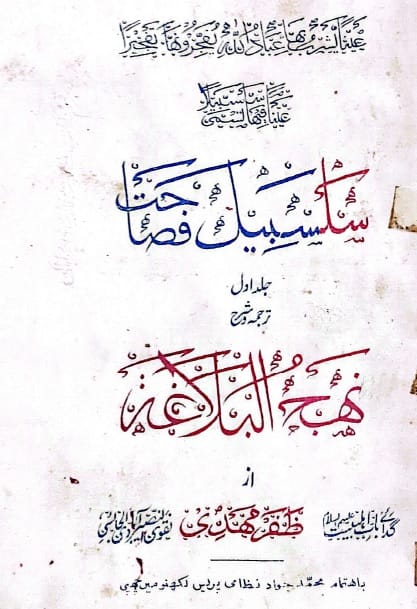 عَيْنًا يَشْرَبُ بِهَا عِبَادُ اللّٰهِ يُفَجِّرُونَهَا تَفْجِيرًا
عَيْنًا فِيهَا تُسَمَّى سَلْسَبِيلًا
سَلْسَبِیْل فَصَاحَت
جلد اول
ترجمہ و شرح
نَهْجُ الْبَلَاغَة
از
گدائے باب اہلبیت علیہم السلام ظفر مہدی نقوی
باہتمام محمد جواد نظامی پریس لکھنو میں چھپی